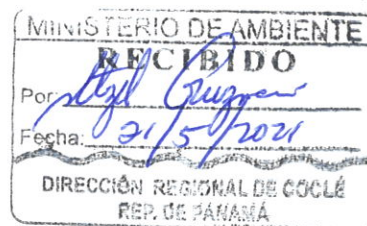 MINISTERIO DE AMBIENTE
RECIBIDO
Por: Itzel Guzmán
Fecha: 21/5/2021
DIRECCIÓN REGIONAL DE COCLÉ
REP. DE PANAMÁ